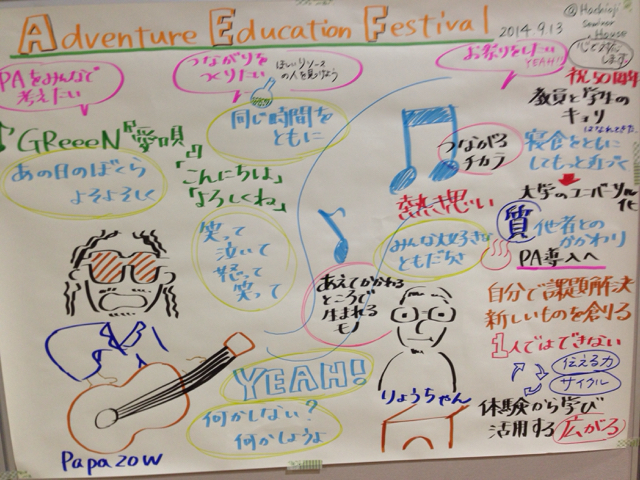 Adventure Education Festival
2014.9.13
@Hachioji
Seminar
House
PAをみんなで
考えたい
つながりを
つくりたい
ほしいリソース
の人を見つけよう
お祭りをしたい
YEAH!!
祝50周年
教員と学生の
キョリ
はなれてきた
寝食をともに
してもっと近づく
大学のユニバーサル
化
質
他者との
かかわり
PA導入へ
自分で課題解決
新しいものを創る
1人ではできない
伝える力
サイクル
体験から学び
活用する
広がる
♪GReeeeN『愛唄』
あの日のぼくら
よそよそしく
同じ時間を
ともに
「こんにちは」
「よろしくね」
笑って
泣いて
怒って
笑って
つながる
チカラ
熱い想い
みんな大好きな
ともだち
あえてかかわる
ところで
生まれる
モノ
りょうちゃん
YEAH!
何かしない?
何かしようよ
Papa zow